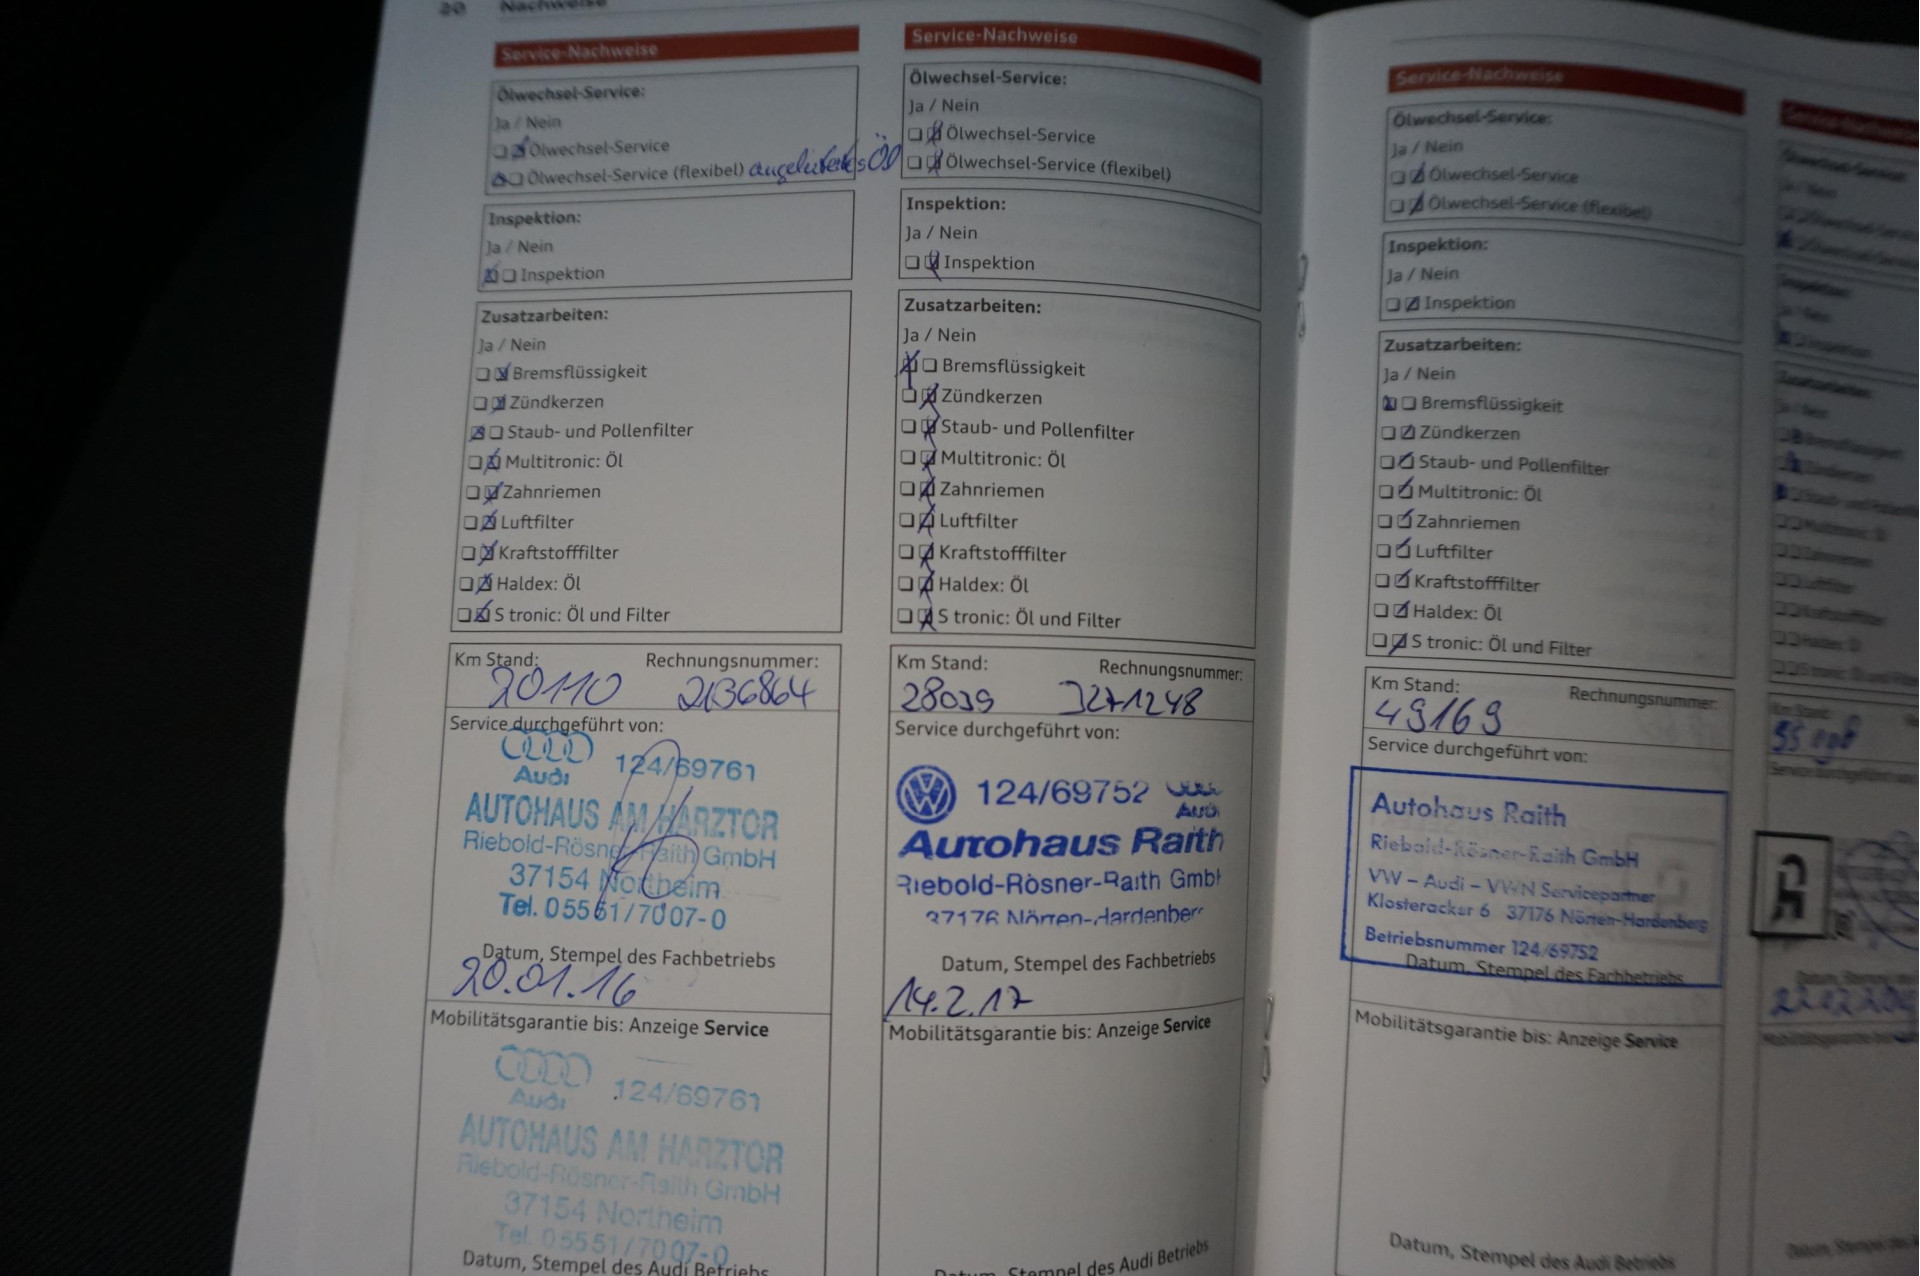 20 Nachweise
Service-Nachweise
Ölwechsel-Service:
Ja / Nein
Ölwechsel-Service
Ölwechsel-Service (flexibel) angeliefertes Öl
Inspektion:
Ja / Nein
Inspektion
Zusatzarbeiten:
Ja / Nein
Bremsflüssigkeit
Zündkerzen
Staub- und Pollenfilter
Multitronic: Öl
Zahnriemen
Luftfilter
Kraftstofffilter
Haldex: Öl
S tronic: Öl und Filter
Km Stand: Rechnungsnummer:
20110 2136864
Service durchgeführt von:
Audi 124/69761
AUTOHAUS AM HARZTOR
Riebold-Rösner-Raith GmbH
37154 Northeim
Tel. 05551/7007-0
Datum, Stempel des Fachbetriebs
20.01.16
Mobilitätsgarantie bis: Anzeige Service
Audi 124/69761
AUTOHAUS AM HARZTOR
Riebold-Rösner-Raith GmbH
37154 Northeim
Tel. 05551/7007-0
Datum, Stempel des Audi Betriebs
Service-Nachweise
Ölwechsel-Service:
Ja / Nein
Ölwechsel-Service
Ölwechsel-Service (flexibel)
Inspektion:
Ja / Nein
Inspektion
Zusatzarbeiten:
Ja / Nein
Bremsflüssigkeit
Zündkerzen
Staub- und Pollenfilter
Multitronic: Öl
Zahnriemen
Luftfilter
Kraftstofffilter
Haldex: Öl
S tronic: Öl und Filter
Km Stand: Rechnungsnummer:
28039 3271248
Service durchgeführt von:
124/69752 Audi
Autohaus Raith
Riebold-Rösner-Raith GmbH
37176 Nörten-Hardenberg
Datum, Stempel des Fachbetriebs
14.2.17
Mobilitätsgarantie bis: Anzeige Service
Datum, Stempel des Audi Betriebs
Service-Nachweise
Ölwechsel-Service:
Ja / Nein
Ölwechsel-Service
Ölwechsel-Service (flexibel)
Inspektion:
Ja / Nein
Inspektion
Zusatzarbeiten:
Ja / Nein
Bremsflüssigkeit
Zündkerzen
Staub- und Pollenfilter
Multitronic: Öl
Zahnriemen
Luftfilter
Kraftstofffilter
Haldex: Öl
S tronic: Öl und Filter
Km Stand: Rechnungsnummer:
49169
Service durchgeführt von:
Autohaus Raith
Riebold-Rösner-Raith GmbH
VW – Audi – VWN Servicepartner
Klosteracker 6 37176 Nörten-Hardenberg
Betriebsnummer 124/69752
Datum, Stempel des Fachbetriebs
Mobilitätsgarantie bis: Anzeige Service
Datum, Stempel des Audi Betriebs